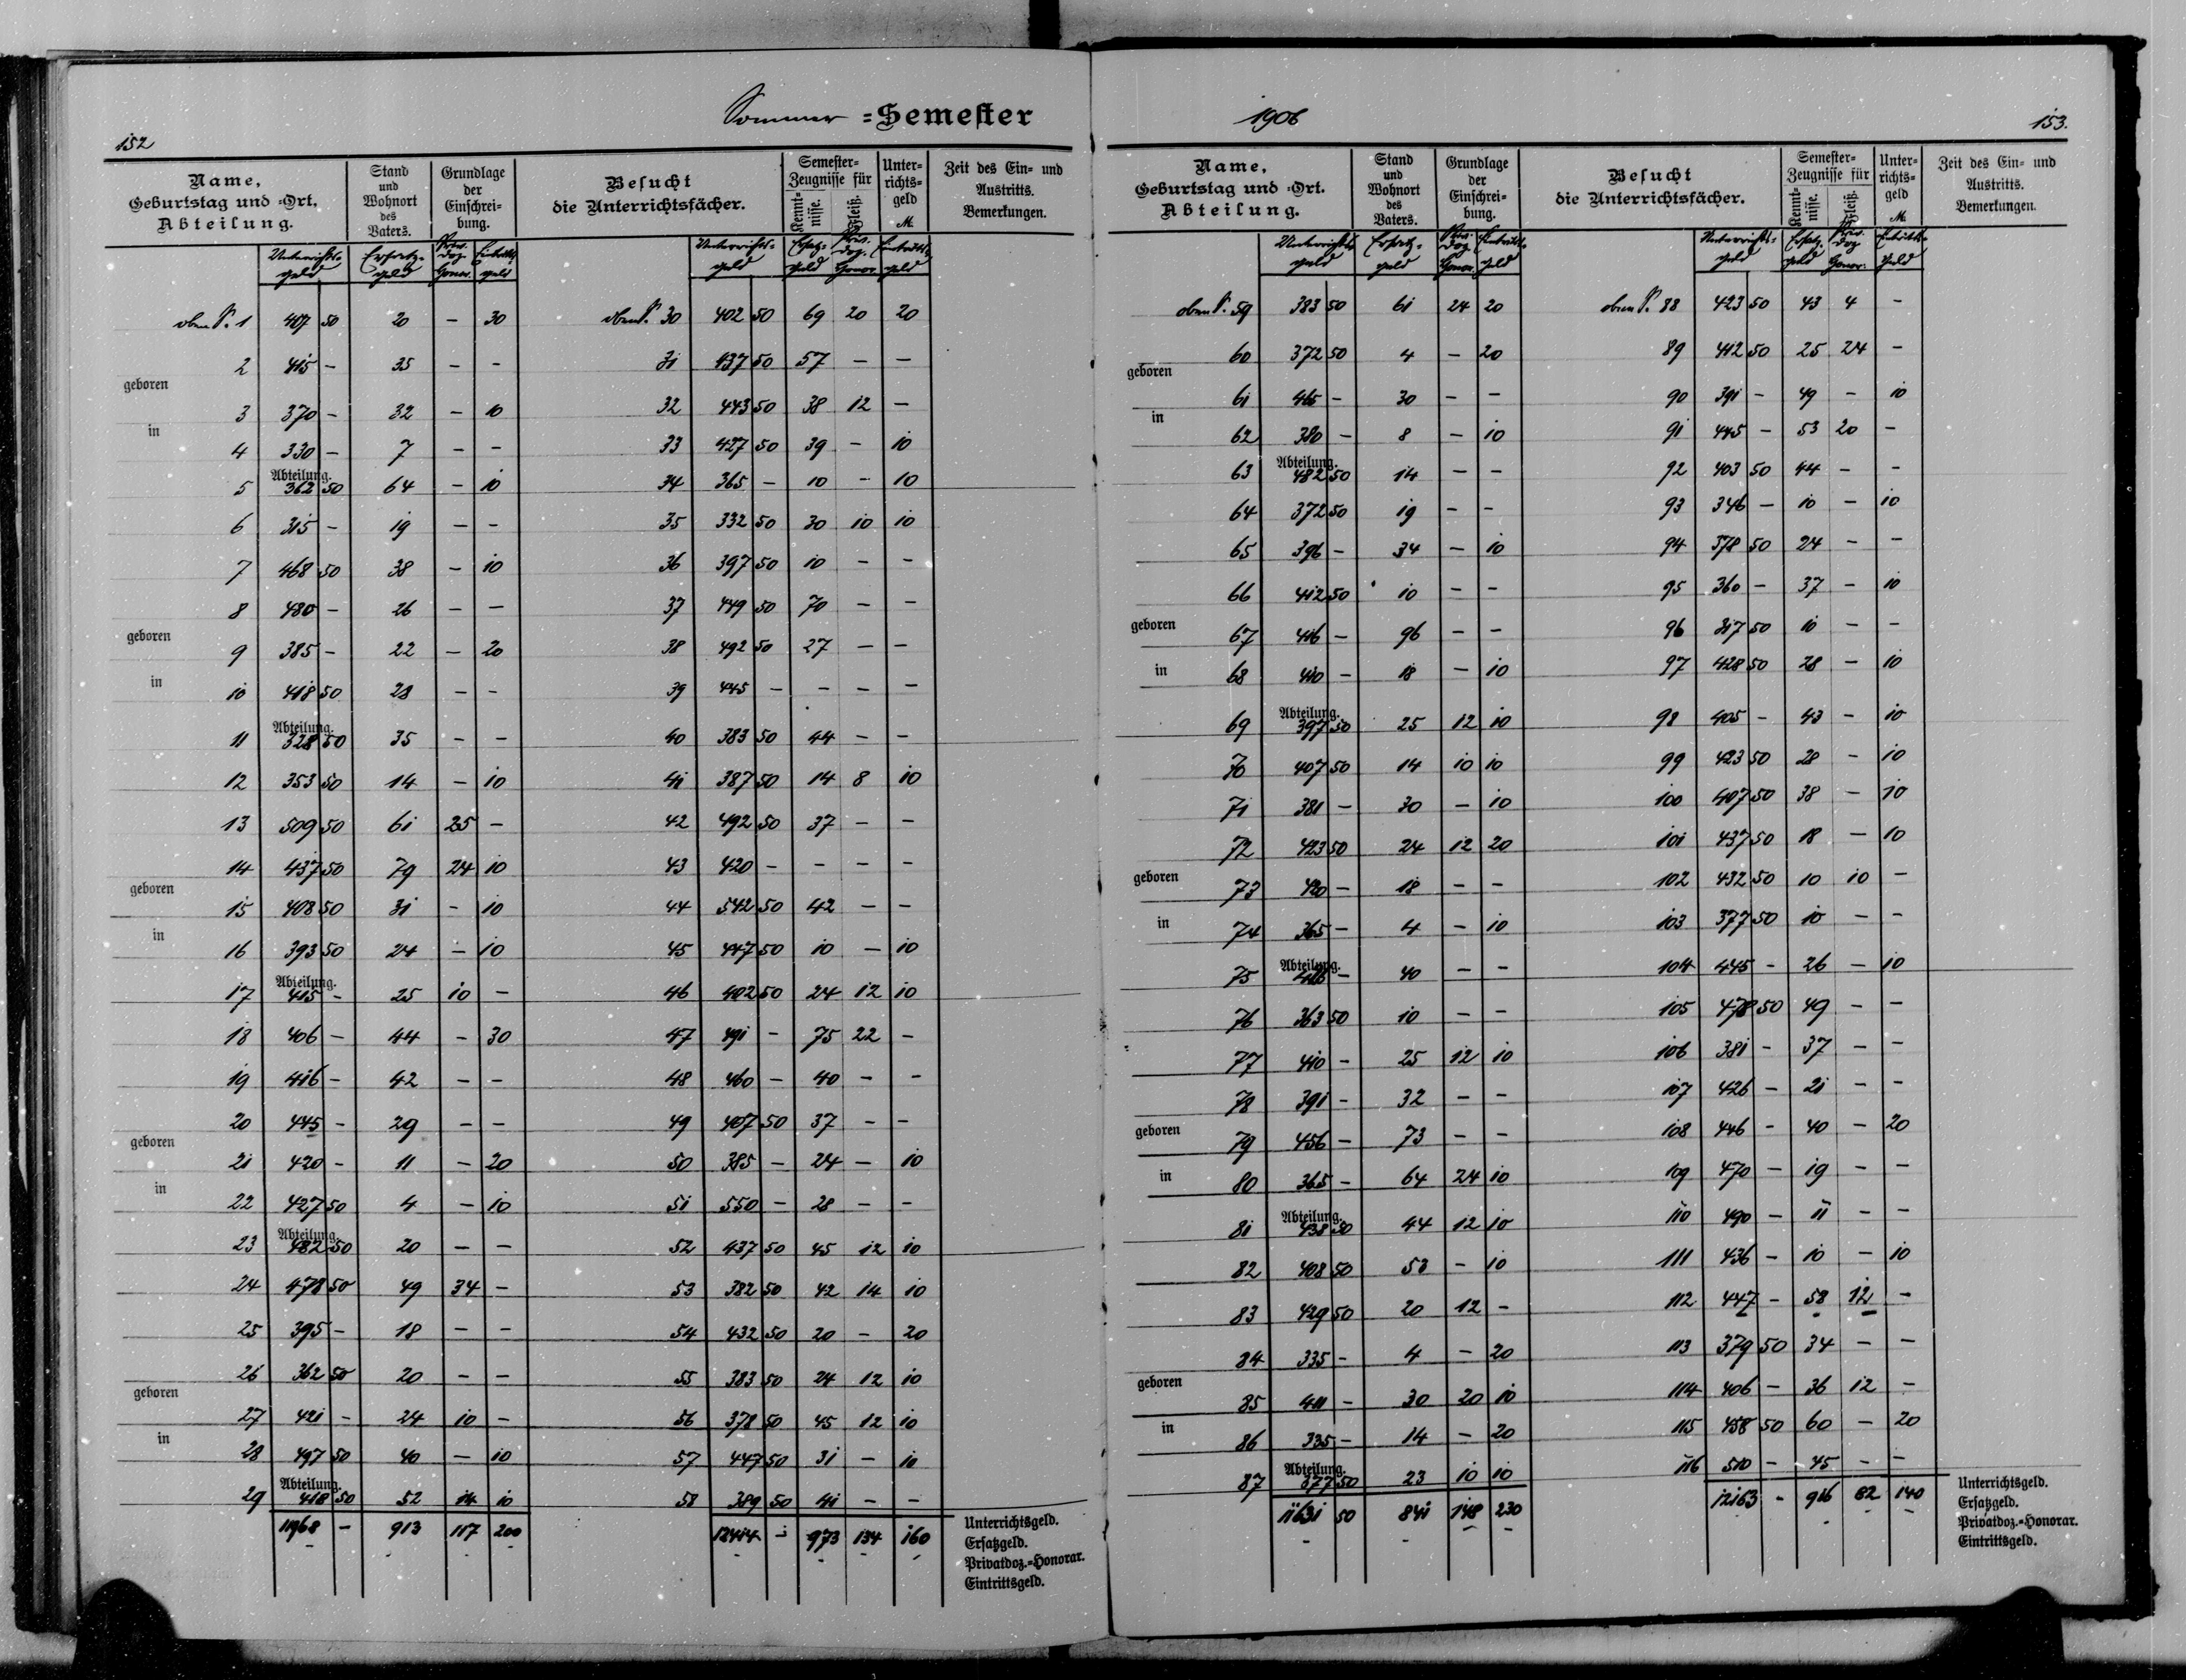 152
Sommer =Semester
Name,
Geburtstag und =Ort.
Abteilung.
Stand
und
Wohnort
des
Vaters.
Grundlage
der
Einschrei-
bung.
Besucht
die Unterrichtsfächer.
Semester-
Zeugnisse für
Kennt-
nisse.
Fleiß.
Unter-
richts-
geld
M.
Zeit des Ein- und
Austritts.
Bemerkungen.
Unterrichts-
geld
Ersatz-
geld
Priv.
Doz.
Honor.
Eintritts-
geld
Unterrichts-
geld
Ersatz-
geld
Priv.
Doz.
Honor.
Eintritts-
geld
oben S. 1 407 50 20 - 30 oben S. 30 402 50 69 20 20
2 415 - 35 - - 31 437 50 57 - -
geboren
3 370 - 32 - 10 32 443 50 38 12 -
in
4 330 - 7 - - 33 427 50 39 - 10
Abteilung.
5 362 50 64 - 10 34 365 - 10 - 10
6 315 - 19 - - 35 332 50 30 10 10
7 468 50 38 - 10 36 397 50 10 - -
8 480 - 26 - - 37 449 50 70 - -
geboren
9 385 - 22 - 20 38 492 50 27 - -
in
10 418 50 28 - - 39 445 - - - -
Abteilung.
11 328 50 35 - - 40 383 50 44 - -
12 353 50 14 - 10 41 387 50 14 8 10
13 509 50 61 25 - 42 492 50 37 - -
14 437 50 79 24 10 43 420 - - - -
geboren
15 408 50 31 - 10 44 542 50 42 - -
in
16 393 50 24 - 10 45 447 50 10 - 10
Abteilung.
17 415 - 25 10 - 46 402 50 24 12 10
18 406 - 44 - 30 47 491 - 75 22 -
19 416 - 42 - - 48 460 - 40 - -
20 445 - 29 - - 49 407 50 37 - -
geboren
21 420 - 11 - 20 50 385 - 24 - 10
in
22 427 50 4 - 10 51 550 - 28 - -
Abteilung.
23 482 50 20 - - 52 437 50 45 12 10
24 478 50 49 34 - 53 382 50 42 14 10
25 395 - 18 - - 54 432 50 20 - 20
26 362 50 20 - - 55 383 50 24 12 10
geboren
27 421 - 24 10 - 56 378 50 45 12 10
in
28 497 50 40 - 10 57 447 50 31 - 10
Abteilung.
29 418 50 52 14 10 58 389 50 41 - -
11968 - 913 117 200 12414 - 973 134 160
Unterrichtsgeld.
Ersatzgeld.
Privatdoz.=Honorar.
Eintrittsgeld.
1906
153.
Name,
Geburtstag und =Ort.
Abteilung.
Stand
und
Wohnort
des
Vaters.
Grundlage
der
Einschrei-
bung.
Besucht
die Unterrichtsfächer.
Semester-
Zeugnisse für
Kennt-
nisse.
Fleiß.
Unter-
richts-
geld
M.
Zeit des Ein- und
Austritts.
Bemerkungen.
Unterrichts-
geld
Ersatz-
geld
Priv.
Doz.
Honor.
Eintritts-
geld
Unterrichts-
geld
Ersatz-
geld
Priv.
Doz
Honor.
Eintritts-
geld
oben S. 59 383 50 61 24 20 oben S. 88 423 50 43 4 -
60 372 50 4 - 20 89 412 50 25 24 -
geboren
61 465 - 30 - - 90 391 - 49 - 10
in
62 380 - 8 - 10 91 445 - 53 20 -
Abteilung.
63 482 50 14 - - 92 403 50 44 - -
64 372 50 19 - - 93 346 - 10 - 10
65 396 - 34 - 10 94 378 50 24 - -
66 412 50 10 - - 95 360 - 37 - 10
geboren
67 416 - 96 - - 96 317 50 10 - -
in
68 410 - 18 - 10 97 428 50 28 - 10
Abteilung.
69 397 50 25 12 10 98 405 - 43 - 10
70 407 50 14 10 10 99 423 50 28 - 10
71 381 - 30 - 10 100 407 50 38 - 10
72 423 50 24 12 20 101 437 50 18 - 10
geboren
73 420 - 18 - - 102 432 50 10 10 -
in
74 365 - 4 - 10 103 377 50 10 - -
Abteilung.
75 - 40 - - 104 445 - 26 - 10
76 363 50 10 - - 105 478 50 49 - -
77 410 - 25 12 10 106 381 - 37 - -
78 391 - 32 - - 107 426 - 21 - -
geboren
79 456 - 73 - - 108 446 - 40 - 20
in
80 365 - 64 24 10 109 470 - 19 - -
Abteilung.
81 438 50 44 12 10 110 490 - 11 - -
82 408 50 53 - 10 111 436 - 10 - 10
83 429 50 20 12 - 112 447 - 58 12 -
84 335 - 4 - 20 113 379 50 34 - -
geboren
85 411 - 30 20 10 114 406 - 36 12 -
in
86 335 - 14 - 20 115 458 50 60 - 20
Abteilung.
87 377 50 23 10 10 116 510 - 45 - -
11631 50 841 148 230 12163 - 916 82 140
Unterrichtsgeld.
Ersatzgeld.
Privatdoz.=Honorar.
Eintrittsgeld.